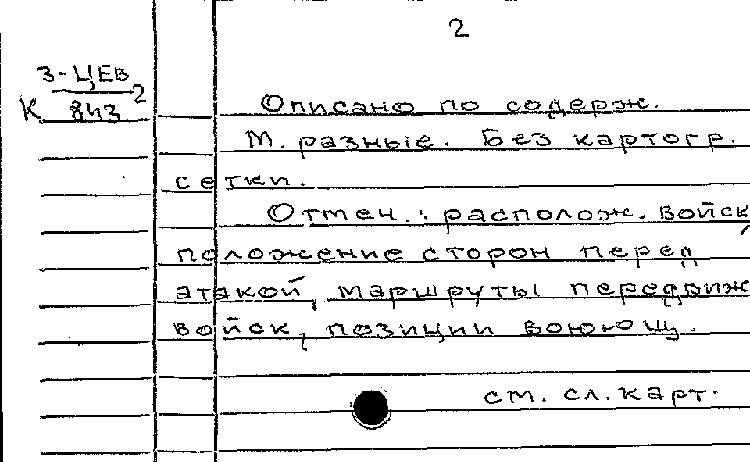 2
3-ЦЕВ
К 843 2
Описано по содерж.
М. разные. Без картогр.
сетки.
Отмеч.: располож. войск,
положение сторон перед
атакой, маршруты передвиж
войск, позиции воюющ.
см. сл. карт.